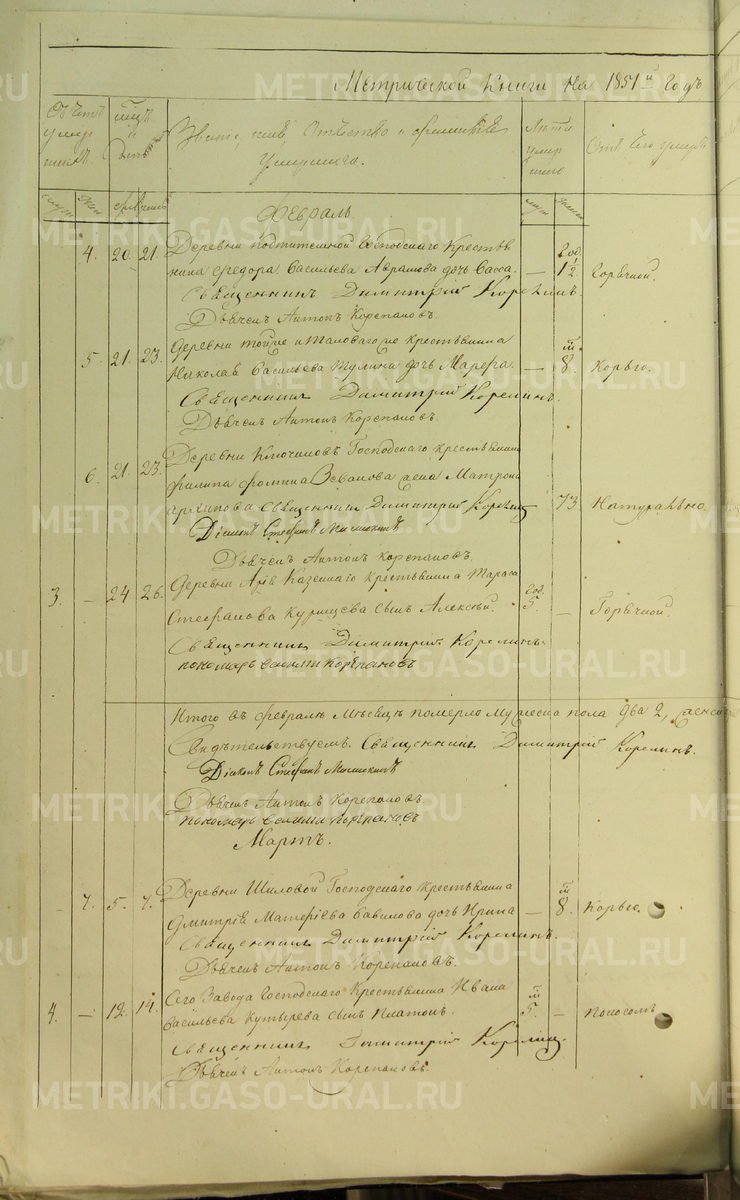 Метрической Книги на 1851й Годъ
Счетъ умершихъ.
Мцъ и день
Званіе, имя, Отчество и фамилія Умершаго.
Лѣта умершаго
Отъ чего умеръ
муж. жен.
Февраль
4. 20. 21. Деревни Господскаго Крестьянина Федора Васильева Аврамова дочь — год. 12. Горячкой.
Священникъ Димитрій Корелинъ
Дьячекъ Антонъ Корепановъ.
5. 21. 23. Деревни крестьянина
Николая Васильева дочь — м. 8. Корью.
Священникъ Димитрій Корелинъ.
Дьячекъ Антонъ Корепановъ.
6. 21 23. Деревни Ключиковъ Господскаго крестьянина
Филипа Фомина жена Матрона
Архипова 73 Натурально
Священникъ Димитрій Корелинъ
Діаконъ Стефанъ
Дьячекъ Антонъ Корепановъ.
3. — 24 26. Деревни Казеннаго крестьянина Тараса
Стефанова сынъ Алексѣй. год. 5. — Горячкой.
Священникъ Димитрій Корелинъ.
пономарь василій корепановъ
Итого въ февралѣ Мѣсяцѣ померло Мужеска пола два 2, женска
Свидѣтельствуемъ. Священникъ Димитрій Корелинъ.
Діаконъ Стефанъ
Дьячекъ Антонъ Корепановъ.
пономарь василій корепановъ
Мартъ.
7. 5. 7. Деревни Шиловой Господскаго крестьянина
Дмитрія Вавилова дочь Ирина — м 8. Корью.
Священникъ Димитрій Корелинъ.
Дьячекъ Антонъ Корепановъ.
4. — 12. 14. Сего Завода Господскаго Крестьянина Ивана
Васильева Кутырева сынъ Платонъ. м 5. — Поносомъ
Священникъ Димитрій Корелинъ.
Дьячекъ Антонъ Корепановъ.
METRIKI.GASO-URAL.RU